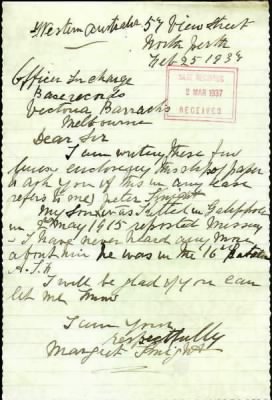 Western Australia 57 View Street
North Perth
Feb 25 1937
BASE RECORDS
2 MAR 1937
RECEIVED
Officer In charge
Base records
Victoria Barracks
Melbourne
Dear Sir
I am writing these few
lines enclosing this slip of paper
to ask you if this in any case
refers to me Peter Knight
My Son was Killed in Galipholi
in May 1915 reported missing
I have never heard any more
about him he was in the 16 Batalion
A.I.F.
I will be glad if you can
let me know
I am Yours
respectfully
Margaret Knight